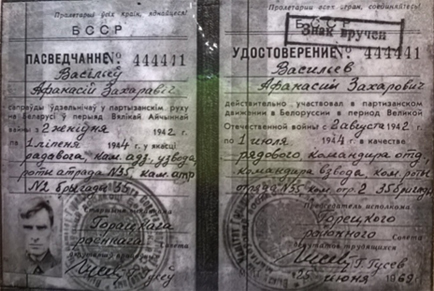 Пралетарыі ўсіх краін, яднайцеся!
БССР
ПАСВЕДЧАННЕ № 444441
Васільеў
Афанасій Захаравіч
сапраўды ўдзельнічаў у партызанскім руху
на Беларусі ў перыяд Вялікай Айчыннай
вайны з 2 жніўня 1942 г. па
1 ліпеня 1944 г. у якасці
радавога, кам. адз, узвода
роты атрада №35, кам. атр
№2 брыгады 35
Старшыня выканкома
Горацкага
раённага Савета
дэпутатаў працоўных
Пролетарии всех стран, соединяйтесь!
БССР
Знак вручен
УДОСТОВЕРЕНИЕ № 444441
Васильев
Афанасий Захарович
действительно участвовал в партизанском
движении в Белоруссии в период Великой
Отечественной войны с 2 августа 1942 г.
по 1 июля 1944 г. в качестве
рядового командира отд,
командира взвода, ком. роты
отряда №35 ком. отр. 2 35 бригады
Председатель исполкома
Горецкого
районного Совета
депутатов трудящихся
Г. Гусев
июня 1969 г.